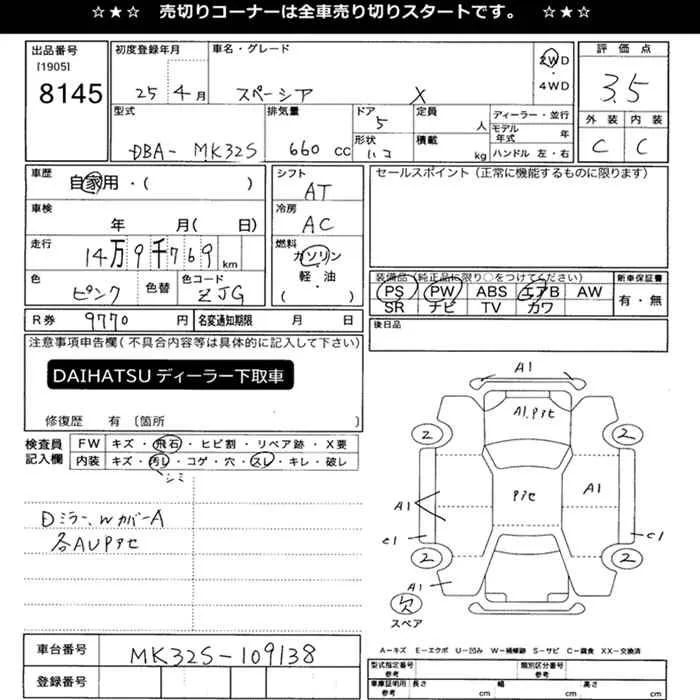 ☆★☆ 売切りコーナーは全車売り切りスタートです。 ☆★☆
出品番号
[1905]
8145
初度登録年月
25 4月
車名・グレード
スペーシア X
2WD
4WD
評価点
3.5
外装 内装
C C
型式
DBA- MK32S
排気量
660 cc
ドア
5
形状
ハコ
定員
人
積載
kg
ディーラー・並行
モデル年式 年
ハンドル 左・右
車歴
自家用・( )
車検
年 月( 日)
走行
14万9千769km
色
ピンク
色替
色コード
ZJG
シフト
AT
冷房
AC
燃料
ガソリン
軽・油
( )
セールスポイント(正常に機能するものに限ります)
装備品(純正品に限り○をつけてください)
PS PW ABS エアB AW
SR ナビ TV カワ
新車保証書
有・無
後日品
R券 9770 円
名変通知期限 月 日
注意事項申告欄(不具合内容等は具体的に記入して下さい)
DAIHATSUディーラー下取車
修復歴 有〔箇所 〕
検査員記入欄
FW キズ・飛石・ヒビ割・リペア跡・X要
内装 キズ・汚レ・コゲ・穴・スレ・キレ・破レ
シミ
Dミラー、WカバーA
各AUアセ
A1
A1.アセ
2 2
アセ
A1
A1
C1 C1
2 2
A1
欠
スペア
A-キズ E-エクボ U-凹み W-補修跡 S-サビ C-腐食 XX-交換済
車台番号
MK32S-109138
登録番号
型式指定番号
参考
類別区分番号
参考
車庫証明用
参考
長さ cm
幅 cm
高さ cm